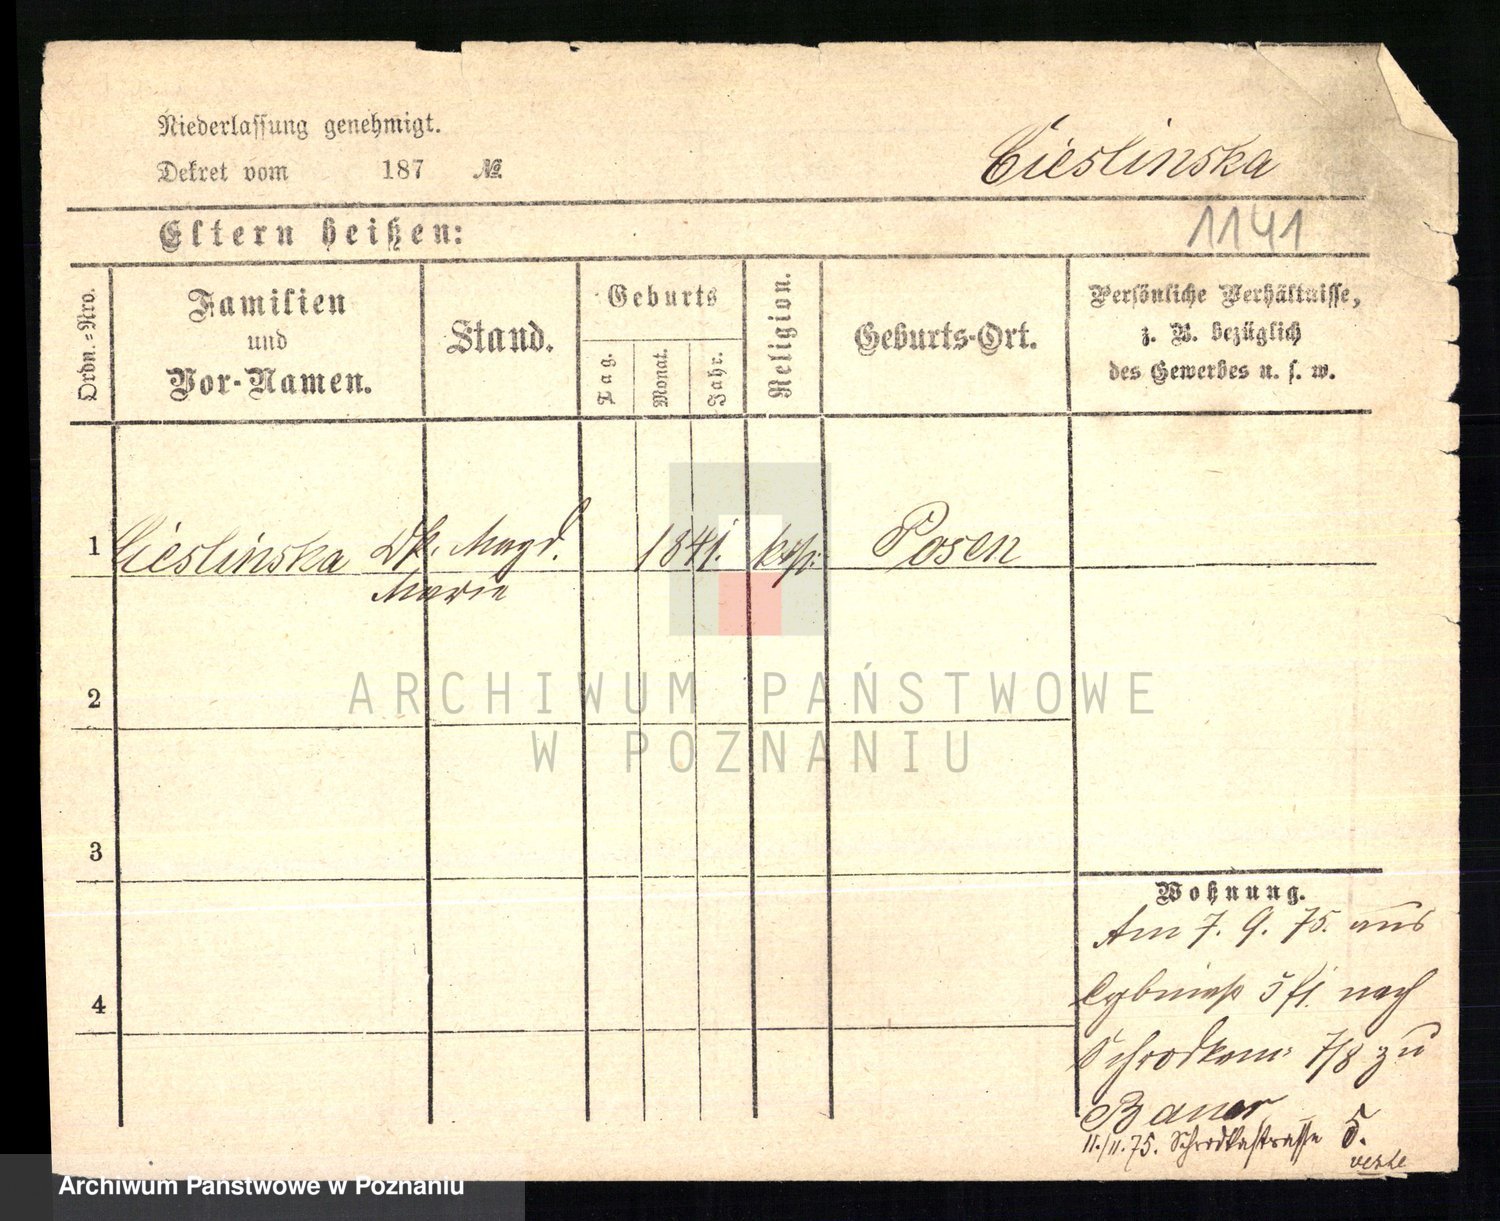 Niederlassung genehmigt.
Dekret vom 187 №
Cieslinska
Eltern heißen:
1141
Ordn.-Nro.
Familien
und
Vor-Namen.
Stand.
Geburts
Tag.
Monat.
Jahr.
Religion.
Geburts-Ort.
Persönliche Verhältnisse,
z. B. bezüglich
des Gewerbes u. s. w.
1 Cieslinska Magd. 1841. kath. Posen
Marie
2
3
4
Wohnung.
Am 7. 9. 75. aus
5 nach
7/8 zu
Bauer
11./11. 75. Schrodkastrasse 5.
verte
ARCHIWUM PAŃSTWOWE
W POZNANIU
Archiwum Państwowe w Poznaniu